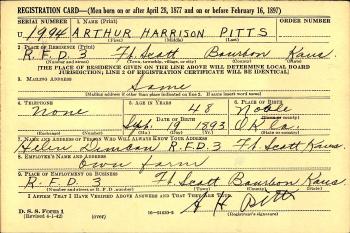 REGISTRATION CARD—(Men born on or after April 28, 1877 and on or before February 16, 1897)
SERIAL NUMBER 1. NAME (Print) ORDER NUMBER
U 1994 ARTHUR HARRISON PITTS
(First) (Middle) (Last)
2. PLACE OF RESIDENCE (Print)
R.F.D. 3 Ft. Scott Bourbon Kans.
(Number and street) (Town, township, village, or city) (County) (State)
[THE PLACE OF RESIDENCE GIVEN ON THE LINE ABOVE WILL DETERMINE LOCAL BOARD
JURISDICTION; LINE 2 OF REGISTRATION CERTIFICATE WILL BE IDENTICAL]
3. MAILING ADDRESS
Same
(Mailing address if other than place indicated on line 2. If same insert word same)
4. TELEPHONE 5. AGE IN YEARS 6. PLACE OF BIRTH
None 48 Noble
DATE OF BIRTH (Town or county)
Sep. 19 1893
(Exchange) (Number) (Mo.) (Day) (Yr.) (State or country)
7. NAME AND ADDRESS OF PERSON WHO WILL ALWAYS KNOW YOUR ADDRESS
Helen R.F.D. 3 Ft. Scott Kans
8. EMPLOYER'S NAME AND ADDRESS
Own farm
9. PLACE OF EMPLOYMENT OR BUSINESS
R.F.D. 3 Ft. Scott Bourbon Kans.
(Number and street or R. F. D. number) (Town) (County) (State)
I AFFIRM THAT I HAVE VERIFIED ABOVE ANSWERS AND THAT THEY ARE TRUE.
A H Pitts
D. S. S. Form 1
(Revised 4-1-42) (over) (Registrant's signature)